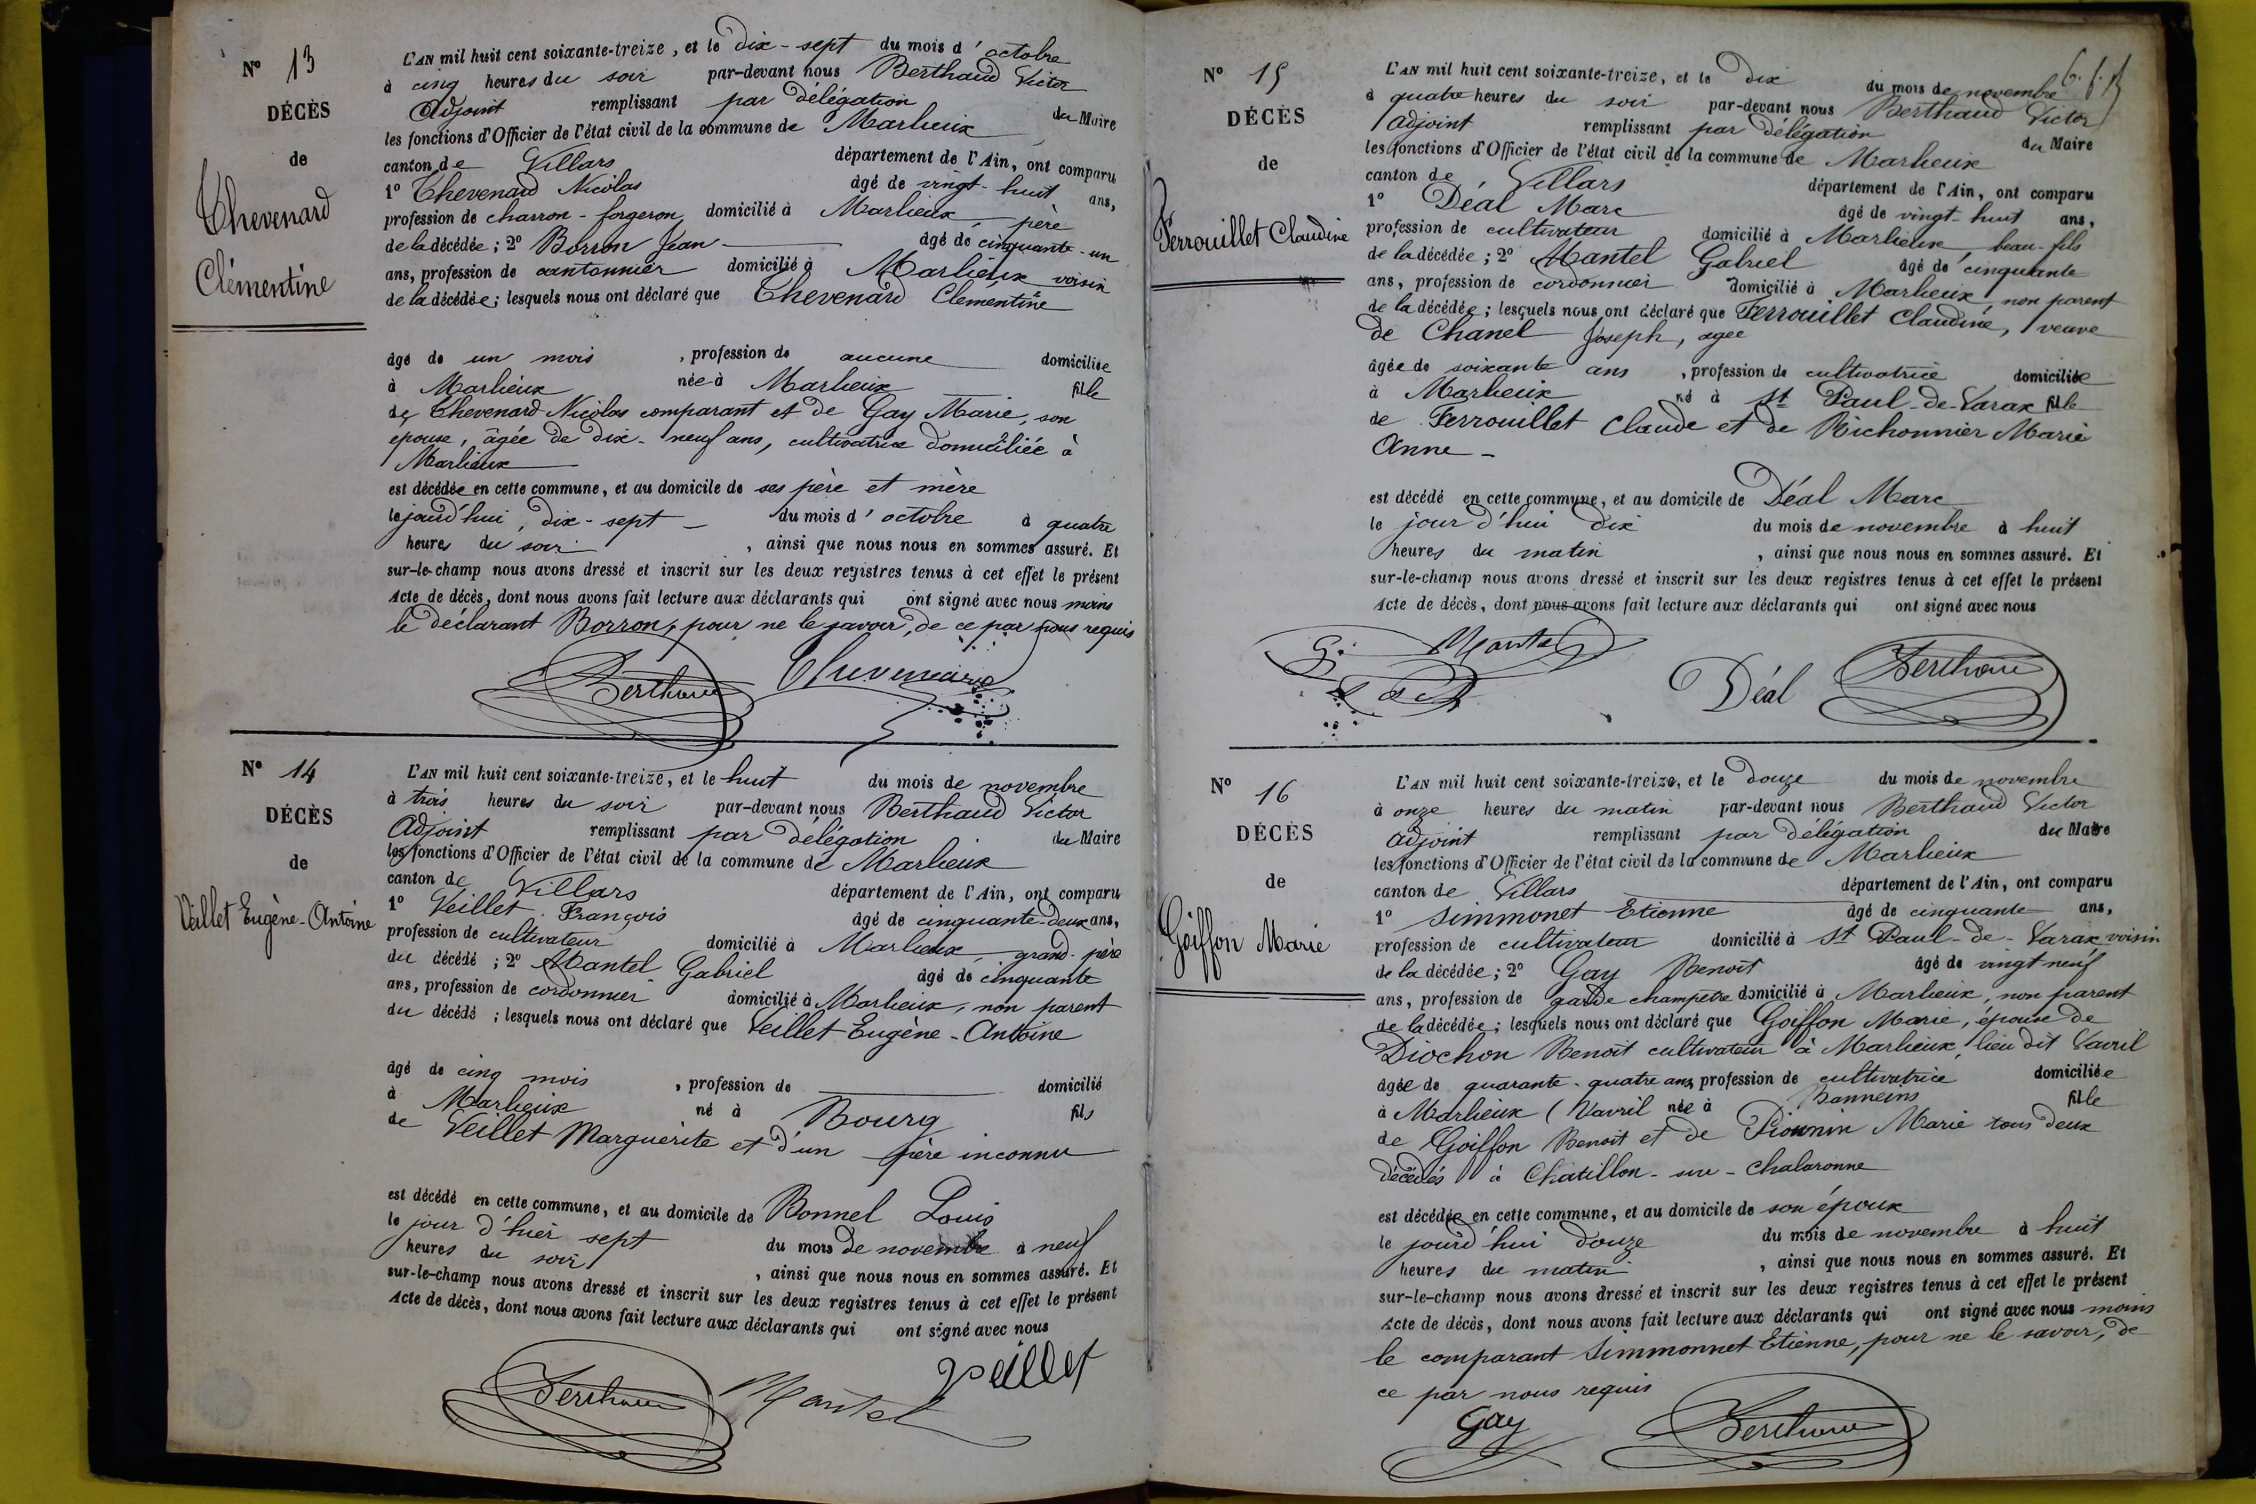 N° 13
DÉCÈS
de
Chevenard
Clémentine
L'AN mil huit cent soixante-treize, et le dix-sept du mois d'octobre
à cinq heures du soir par-devant nous Berthaud Victor
Adjoint remplissant par délégation du Maire
les fonctions d'Officier de l'état civil de la commune de Marlieux
canton de Villars département de l'Ain, ont comparu
1° Chevenard Nicolas âgé de vingt-huit ans,
profession de charron-forgeron, domicilié à Marlieux père
de la décédée; 2° Borron Jean âgé de cinquante-un
ans, profession de cantonnier domicilié à Marlieux voisin
de la décédée; lesquels nous ont déclaré que Chevenard Clémentine
âgé de un mois, profession de aucune domiciliée
à Marlieux née à Marlieux fille
de Chevenard Nicolas comparant et de Gay Marie, son
épouse, âgée de dix-neuf ans, cultivatrice domiciliée à
Marlieux
est décédée en cette commune, et au domicile de ses père et mère
le jourd'hui, dix-sept du mois d'octobre à quatre
heures du soir, ainsi que nous nous en sommes assuré. Et
sur-le-champ nous avons dressé et inscrit sur les deux registres tenus à cet effet le présent
Acte de décès, dont nous avons fait lecture aux déclarants qui ont signé avec nous moins
le déclarant Borron, pour ne le savoir, de ce par nous requis
Berthaud Chevenard
N° 14
DÉCÈS
de
Veillet Eugène-Antoine
L'AN mil huit cent soixante-treize, et le huit du mois de novembre
à trois heures du soir par-devant nous Berthaud Victor
Adjoint remplissant par délégation du Maire
les fonctions d'Officier de l'état civil de la commune de Marlieux
canton de Villars département de l'Ain, ont comparu
1° Veillet François âgé de cinquante-deux ans,
profession de cultivateur domicilié à Marlieux, grand-père
du décédé; 2° Mantel Gabriel âgé de cinquante
ans, profession de cordonnier domicilié à Marlieux, non parent
du décédé; lesquels nous ont déclaré que Veillet Eugène-Antoine
âgé de cinq mois, profession de domicilié
à Marlieux né à Bourg fils
de Veillet Marguerite et d'un père inconnu
est décédé en cette commune, et au domicile de Bonnel Louis
le jour d'hier sept du mois de novembre à neuf
heures du soir, ainsi que nous nous en sommes assuré. Et
sur-le-champ nous avons dressé et inscrit sur les deux registres tenus à cet effet le présent
Acte de décès, dont nous avons fait lecture aux déclarants qui ont signé avec nous
Berthaud Mantel Veillet
N° 15
DÉCÈS
de
Ferrouillet Claudine
L'AN mil huit cent soixante-treize, et le dix du mois de novembre
à quatre heures du soir par-devant nous Berthaud Victor
Adjoint remplissant par délégation du Maire
les fonctions d'Officier de l'état civil de la commune de Marlieux
canton de Villars département de l'Ain, ont comparu
1° Déal Marc âgé de vingt-huit ans,
profession de cultivateur domicilié à Marlieux, beau-fils
de la décédée; 2° Mantel Gabriel âgé de cinquante
ans, profession de cordonnier domicilié à Marlieux, non parent
de la décédée; lesquels nous ont déclaré que Ferrouillet Claudine, veuve
de Chanel Joseph, agée
âgée de soixante ans, profession de cultivatrice domiciliée
à Marlieux né à St Paul-de-Varax fille
de Ferrouillet Claude et de Richonnier Marie
Anne -
est décédé en cette commune, et au domicile de Déal Marc
le jour d'hui dix du mois de novembre à huit
heures du matin, ainsi que nous nous en sommes assuré. Et
sur-le-champ nous avons dressé et inscrit sur les deux registres tenus à cet effet le présent
Acte de décès, dont nous avons fait lecture aux déclarants qui ont signé avec nous
G. Mantel Déal Berthaud
N° 16
DÉCÈS
de
Goiffon Marie
L'AN mil huit cent soixante-treize, et le douze du mois de novembre
à onze heures du matin par-devant nous Berthaud Victor
Adjoint remplissant par délégation du Maire
les fonctions d'Officier de l'état civil de la commune de Marlieux
canton de Villars département de l'Ain, ont comparu
1° Simmonet Etienne âgé de cinquante ans,
profession de cultivateur domicilié à St Paul-de-Varax voisin
de la décédée; 2° Gay Benoît âgé de vingt neuf
ans, profession de garde champêtre domicilié à Marlieux, non parent
de la décédée; lesquels nous ont déclaré que Goiffon Marie, épouse de
Diochon Benoit cultivateur à Marlieux, lieu dit Vavril
âgée de quarante-quatre ans, profession de cultivatrice domiciliée
à Marlieux (Vavril née à Banneins fille
de Goiffon Benoit et de Marie tous deux
décédés à Chatillon-sur-Chalaronne
est décédée en cette commune, et au domicile de son époux
le jourd'hui douze du mois de novembre à huit
heures du matin, ainsi que nous nous en sommes assuré. Et
sur-le-champ nous avons dressé et inscrit sur les deux registres tenus à cet effet le présent
Acte de décès, dont nous avons fait lecture aux déclarants qui ont signé avec nous moins
le comparant Simmonnet Etienne, pour ne le savoir, de
ce par nous requis
Gay Berthaud